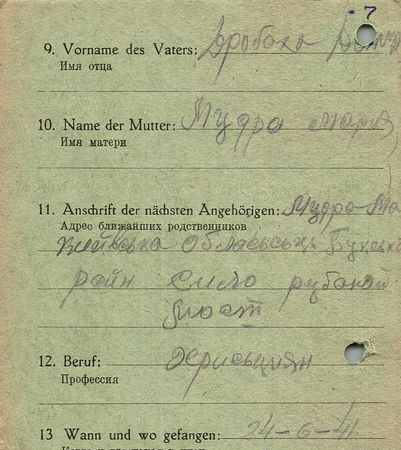 7
9. Vorname des Vaters: Дробаха
Имя отца
10. Name der Mutter: Мудра Мария
Имя матери
11. Anschrift der nächsten Angehörigen: Мудра Ма
Адрес ближайших родственников
район село рубаной
мост
12. Beruf:
Профессия
13 Wann und wo gefangen: 24-6-41